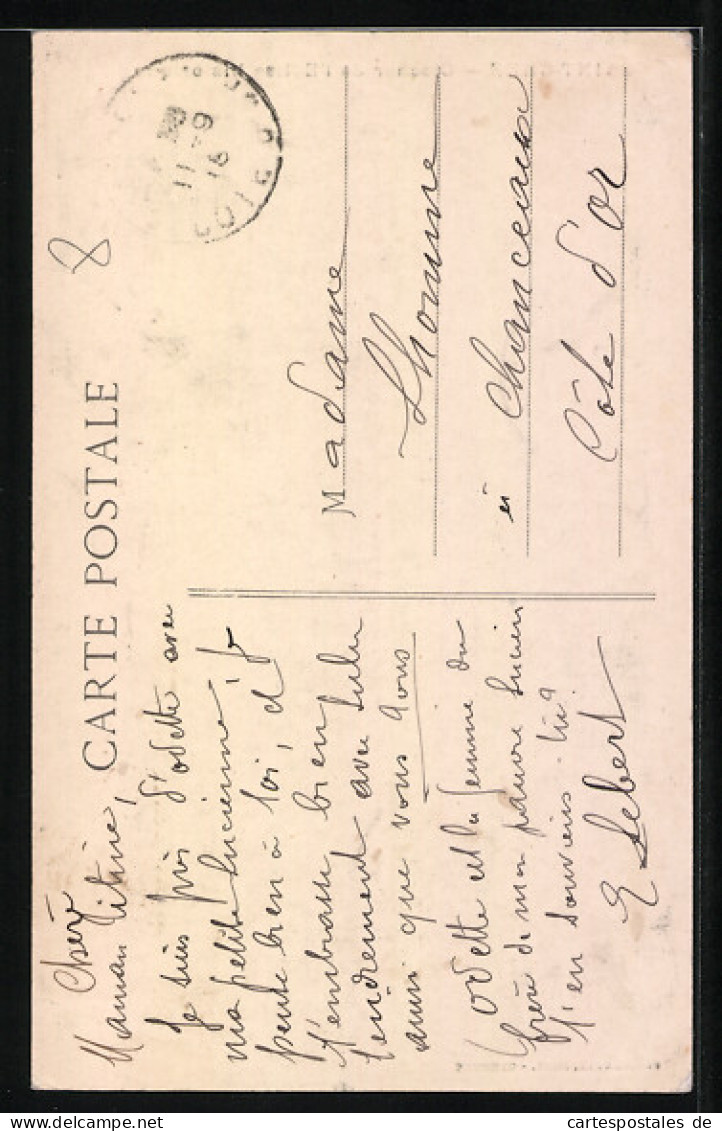 CARTE POSTALE
Chère
Maman Titine,
Je suis près d'Odette avec
ma petite Lucienne, je
pense bien à toi, et
t'embrasse bien
tendrement avec Lulu
ainsi que vous tous
Odette est la femme du
frère de mon pauvre Lucien
t'en souviens-tu?
E Lebert
8
11-9
16
COTE D'OR
Madame
Lhomme
à Chanceaux
Côte d'Or
cartespostales de